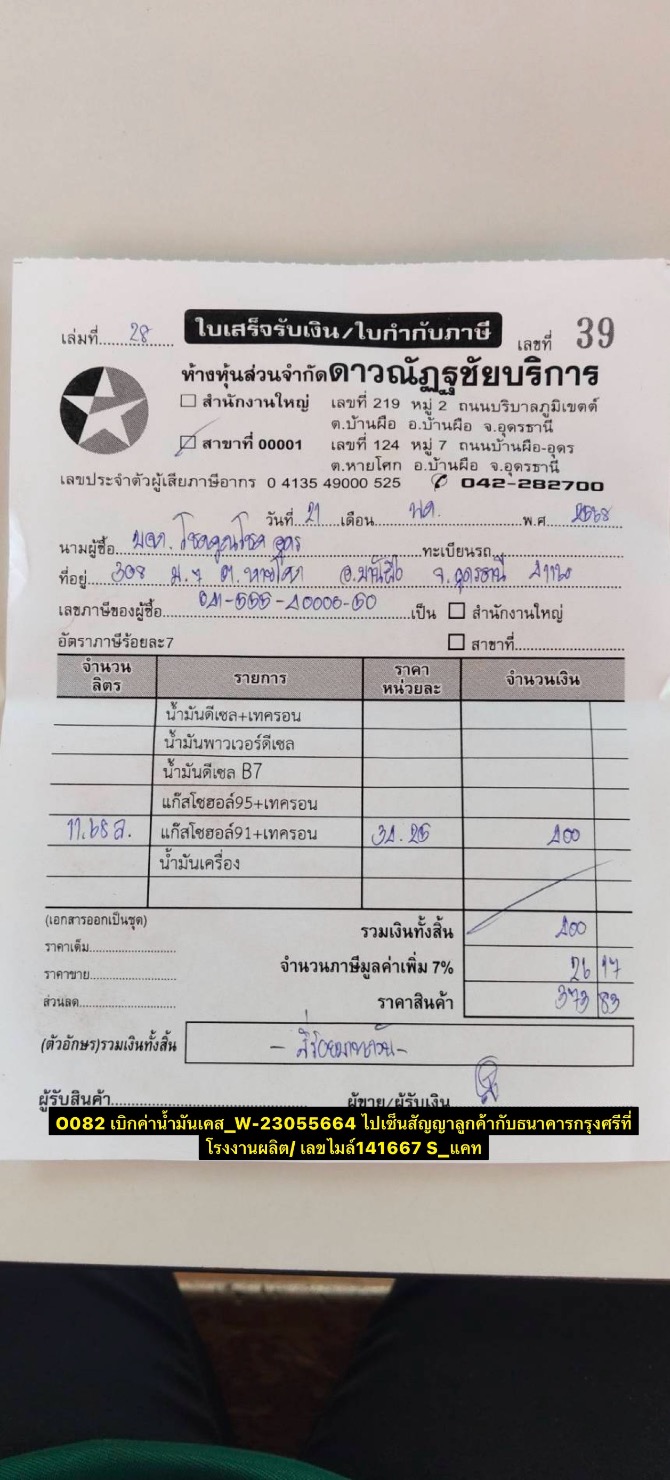 เล่มที่ 28 ใบเสร็จรับเงิน/ใบกำกับภาษี เลขที่ 39
ห้างหุ้นส่วนจำกัดดาวณัฏฐชัยบริการ
สำนักงานใหญ่ เลขที่ 219 หมู่ 2 ถนนบริบาลภูมิเขตต์
ต.บ้านผือ อ.บ้านผือ จ.อุดรธานี
สาขาที่ 00001 เลขที่ 124 หมู่ 7 ถนนบ้านผือ-อุดร
ต.หายโศก อ.บ้านผือ จ.อุดรธานี
เลขประจำตัวผู้เสียภาษีอากร 0 4135 49000 525 042-282700
วันที่ 21 เดือน พค. พ.ศ 2568
นามผู้ซื้อ บจก. โชคคูณโชค อุดร ทะเบียนรถ
ที่อยู่ 308 ม.7 ต.หายโศก อ.บ้านผือ จ.อุดรธานี
เลขภาษีของผู้ซื้อ เป็น สำนักงานใหญ่
อัตราภาษีร้อยละ7 สาขาที่
จำนวนลิตร รายการ ราคาหน่วยละ จำนวนเงิน
น้ำมันดีเซล+เทครอน
น้ำมันพาวเวอร์ดีเซล
น้ำมันดีเซล B7
แก๊สโซฮอล์95+เทครอน
11.68 ล. แก๊สโซฮอล์91+เทครอน 34.25 400
น้ำมันเครื่อง
(เอกสารออกเป็นชุด) รวมเงินทั้งสิ้น 400
ราคาเต็ม
จำนวนภาษีมูลค่าเพิ่ม 7% 26 17
ราคาขาย
ส่วนลด ราคาสินค้า 373 83
(ตัวอักษร)รวมเงินทั้งสิ้น - สี่ร้อยบาทถ้วน -
ผู้รับสินค้า ผู้ขาย/ผู้รับเงิน
O082 เบิกค่าน้ำมันเคส_W-23055664 ไปเซ็นสัญญาลูกค้ากับธนาคารกรุงศรีที่
โรงงานผลิต/ เลขไมล์141667 S_แคท